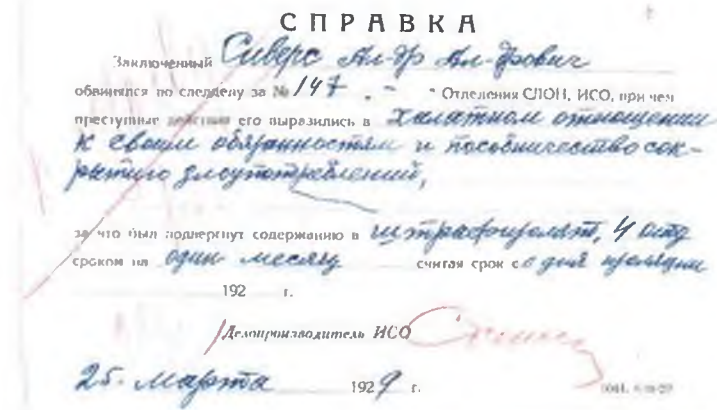 СПРАВКА
Заключенный Сиверс Ал-др Ал-дрович
обвинялся по следделу за № 147. - " Отделения СЛОН, ИСО, при чем
преступные действия его выразились в Халатном отношении
к своим обязанностям и пособничество сок-
рытию злоупотреблений,
за что был подвергнут содержанию в штрафизолят, 4 отд
сроком на один месяц считая срок с о дня
192 г.
Делопроизводитель ИСО
25. Марта 1929 г.